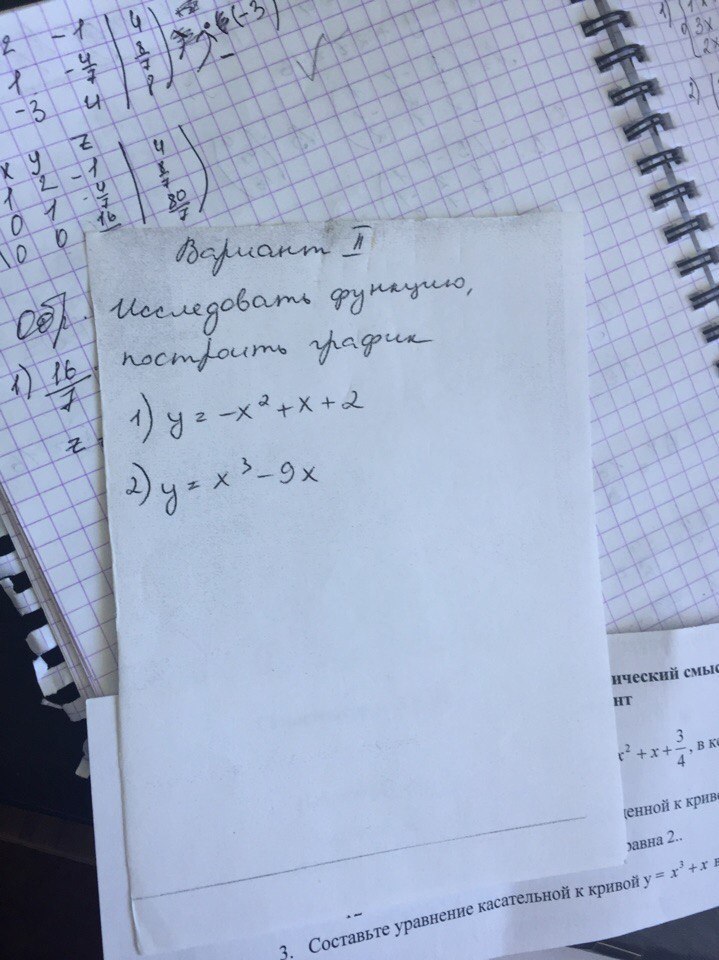 2 -1 | 4
1 -4/7 | 8/7
-3 4 | 8
·(-3)
x y z
1 2 -1 | 4
0 1 -4/7 | 8/7
0 0 16 | 80/7
Обр.
1) 16/7
z =
Вариант II
Исследовать функцию,
построить график
1) y = -x² + x + 2
2) y = x³ - 9x
1)
3x
2)
ический смыс
нт
x² + x + 3/4, в ко
денной к криво
равна 2..
3. Составьте уравнение касательной к кривой y = x³ + x в